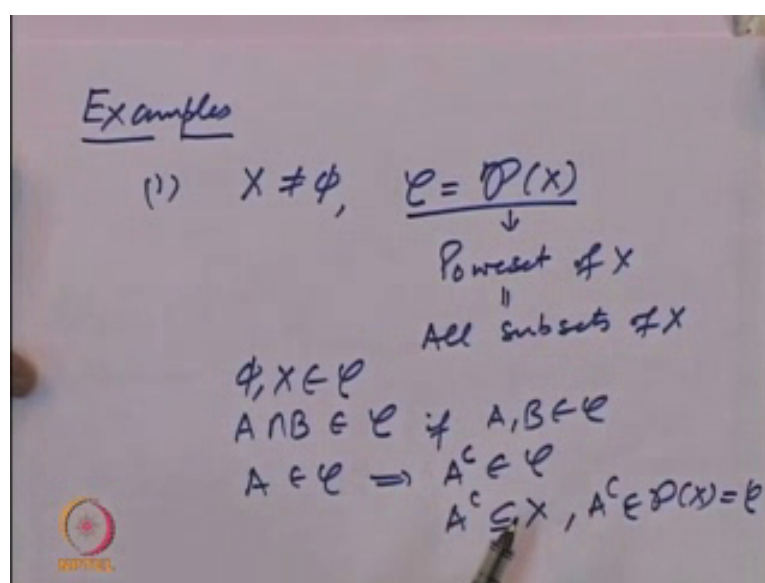 Examples
(1) X ≠ φ, 𝒞 = 𝒫(X)
↓
Poweset of X
||
All subsets of X
φ, X ∈ 𝒞
A ∩ B ∈ 𝒞 if A, B ∈ 𝒞
A ∈ 𝒞 ⇒ Aᶜ ∈ 𝒞
Aᶜ ⊆ X, Aᶜ ∈ 𝒫(X) = 𝒞
NPTEL